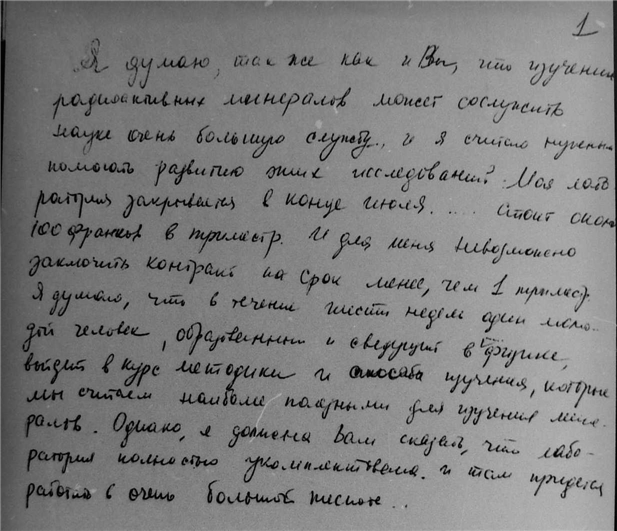 1
Я думаю, так же как и Вы, что изучение
радиоактивных минералов может сослужить
науке очень большую службу, и я считаю нужным
помогать развитию этих исследований. Моя лабо-
ратория закрывается в конце июля. .... стоит около
100 франков в триместр. И для меня невозможно
заключить контракт на срок менее, чем 1 триместр.
Я думаю, что в течении шести недель один моло-
дой человек, образованный и сведущий в физике,
войдет в курс методики и способа изучения, которые
мы считаем наиболее полезными для изучения мине-
ралов. Однако, я должна Вам сказать, что лабо-
ратория полностью укомплектована и там придется
работать в очень большой тесноте..